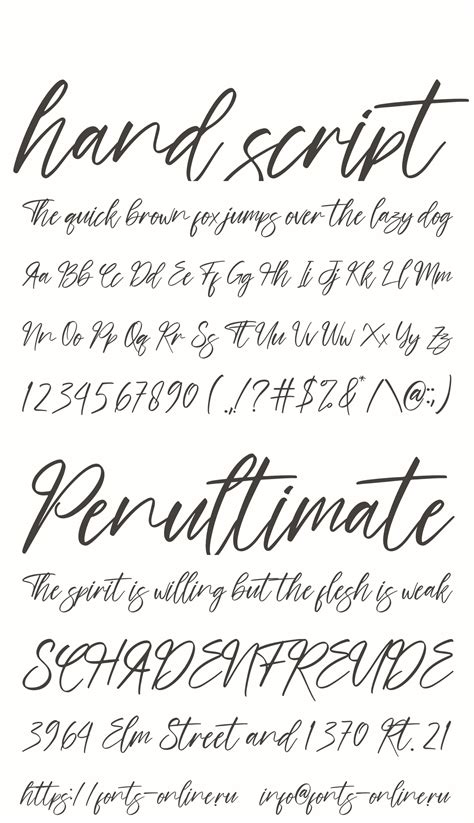 hand script
The quick brown fox jumps over the lazy dog
Aa Bb Cc Dd Ee Ff Gg Hh Ii Jj Kk Ll Mm
Nn Oo Pp Qq Rr Ss Tt Uu Vv Ww Xx Yy Zz
1234567890 (.,!?#$%&* /\@:;)
Penultimate
The spirit is willing but the flesh is weak
SCHADENFREUDE
3964 Elm Street and 1370 Rt. 21
https://fonts-online.ru info@fonts-online.ru